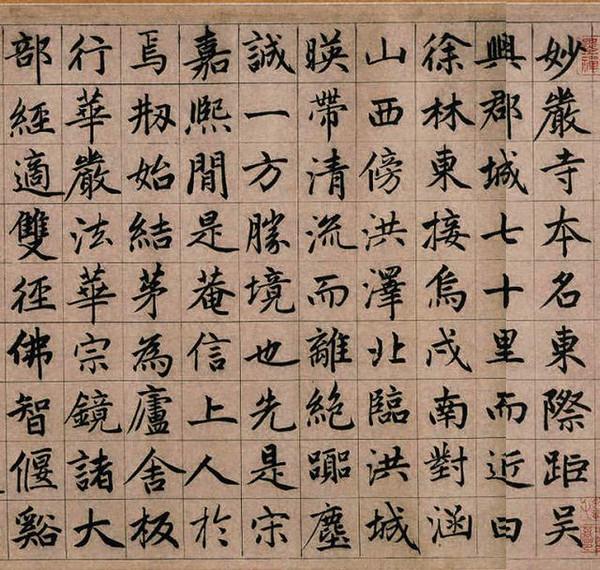 妙嚴寺本名東際距吳
興郡城七十里而近曰
徐林東接烏戍南對涵
山西傍洪澤北臨洪城
暎帶清流而離絕囂塵
誠一方勝境也先是宋
嘉熙間是菴信上人於
焉剏始結茅為廬舍板
行華嚴法華宗鏡諸大
部經適雙徑佛智偃谿